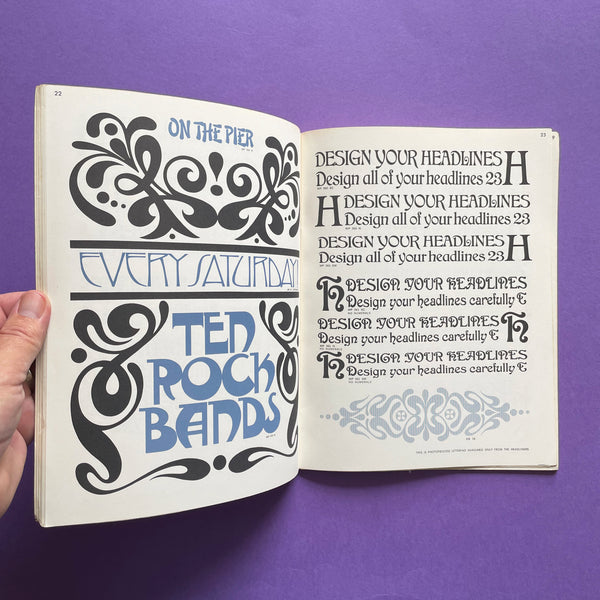 22
ON THE PIER
EVERY SATURDAY
TEN
ROCK
BANDS
23
9
DESIGN YOUR HEADLINES H
Design all of your headlines 23
H DESIGN YOUR HEADLINES
Design all of your headlines 23
DESIGN YOUR HEADLINES H
Design all of your headlines 23
H DESIGN YOUR HEADLINES
Design your headlines carefully C
DESIGN YOUR HEADLINES H
Design your headlines carefully C
H DESIGN YOUR HEADLINES
Design your headlines carefully C
THIS IS PHOTOPROCESS LETTERING AVAILABLE ONLY FROM THE HEADLINERS